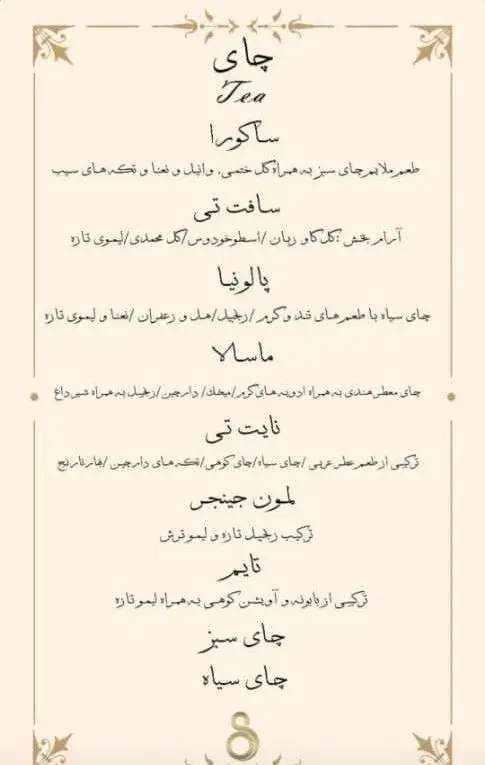 چای
Tea
ساکورا
طعم ملایم چای سبز به همراه گل ختمی، وانیل و نعنا و تکه های سیب
سافت تی
آرام بخش :گل گاو زبان /اسطوخودوس/گل محمدی/لیموی تازه
پالونیا
چای سیاه با طعم های تند و گرم /زنجبیل/هل و زعفران /نعنا و لیموی تازه
ماسالا
چای معطر هندی به همراه ادویه های گرم/میخک/ دارچین/زنجبیل به همراه شیر داغ
نایت تی
ترکیبی از طعم عطر عربی /چای سیاه/چای کوهی/تکه های دارچین /بهار نارنج
لمون جینجر
ترکیب زنجبیل تازه و لیمو ترش
تایم
ترکیبی از بابونه و آویشن کوهی به همراه لیمو تازه
چای سبز
چای سیاه